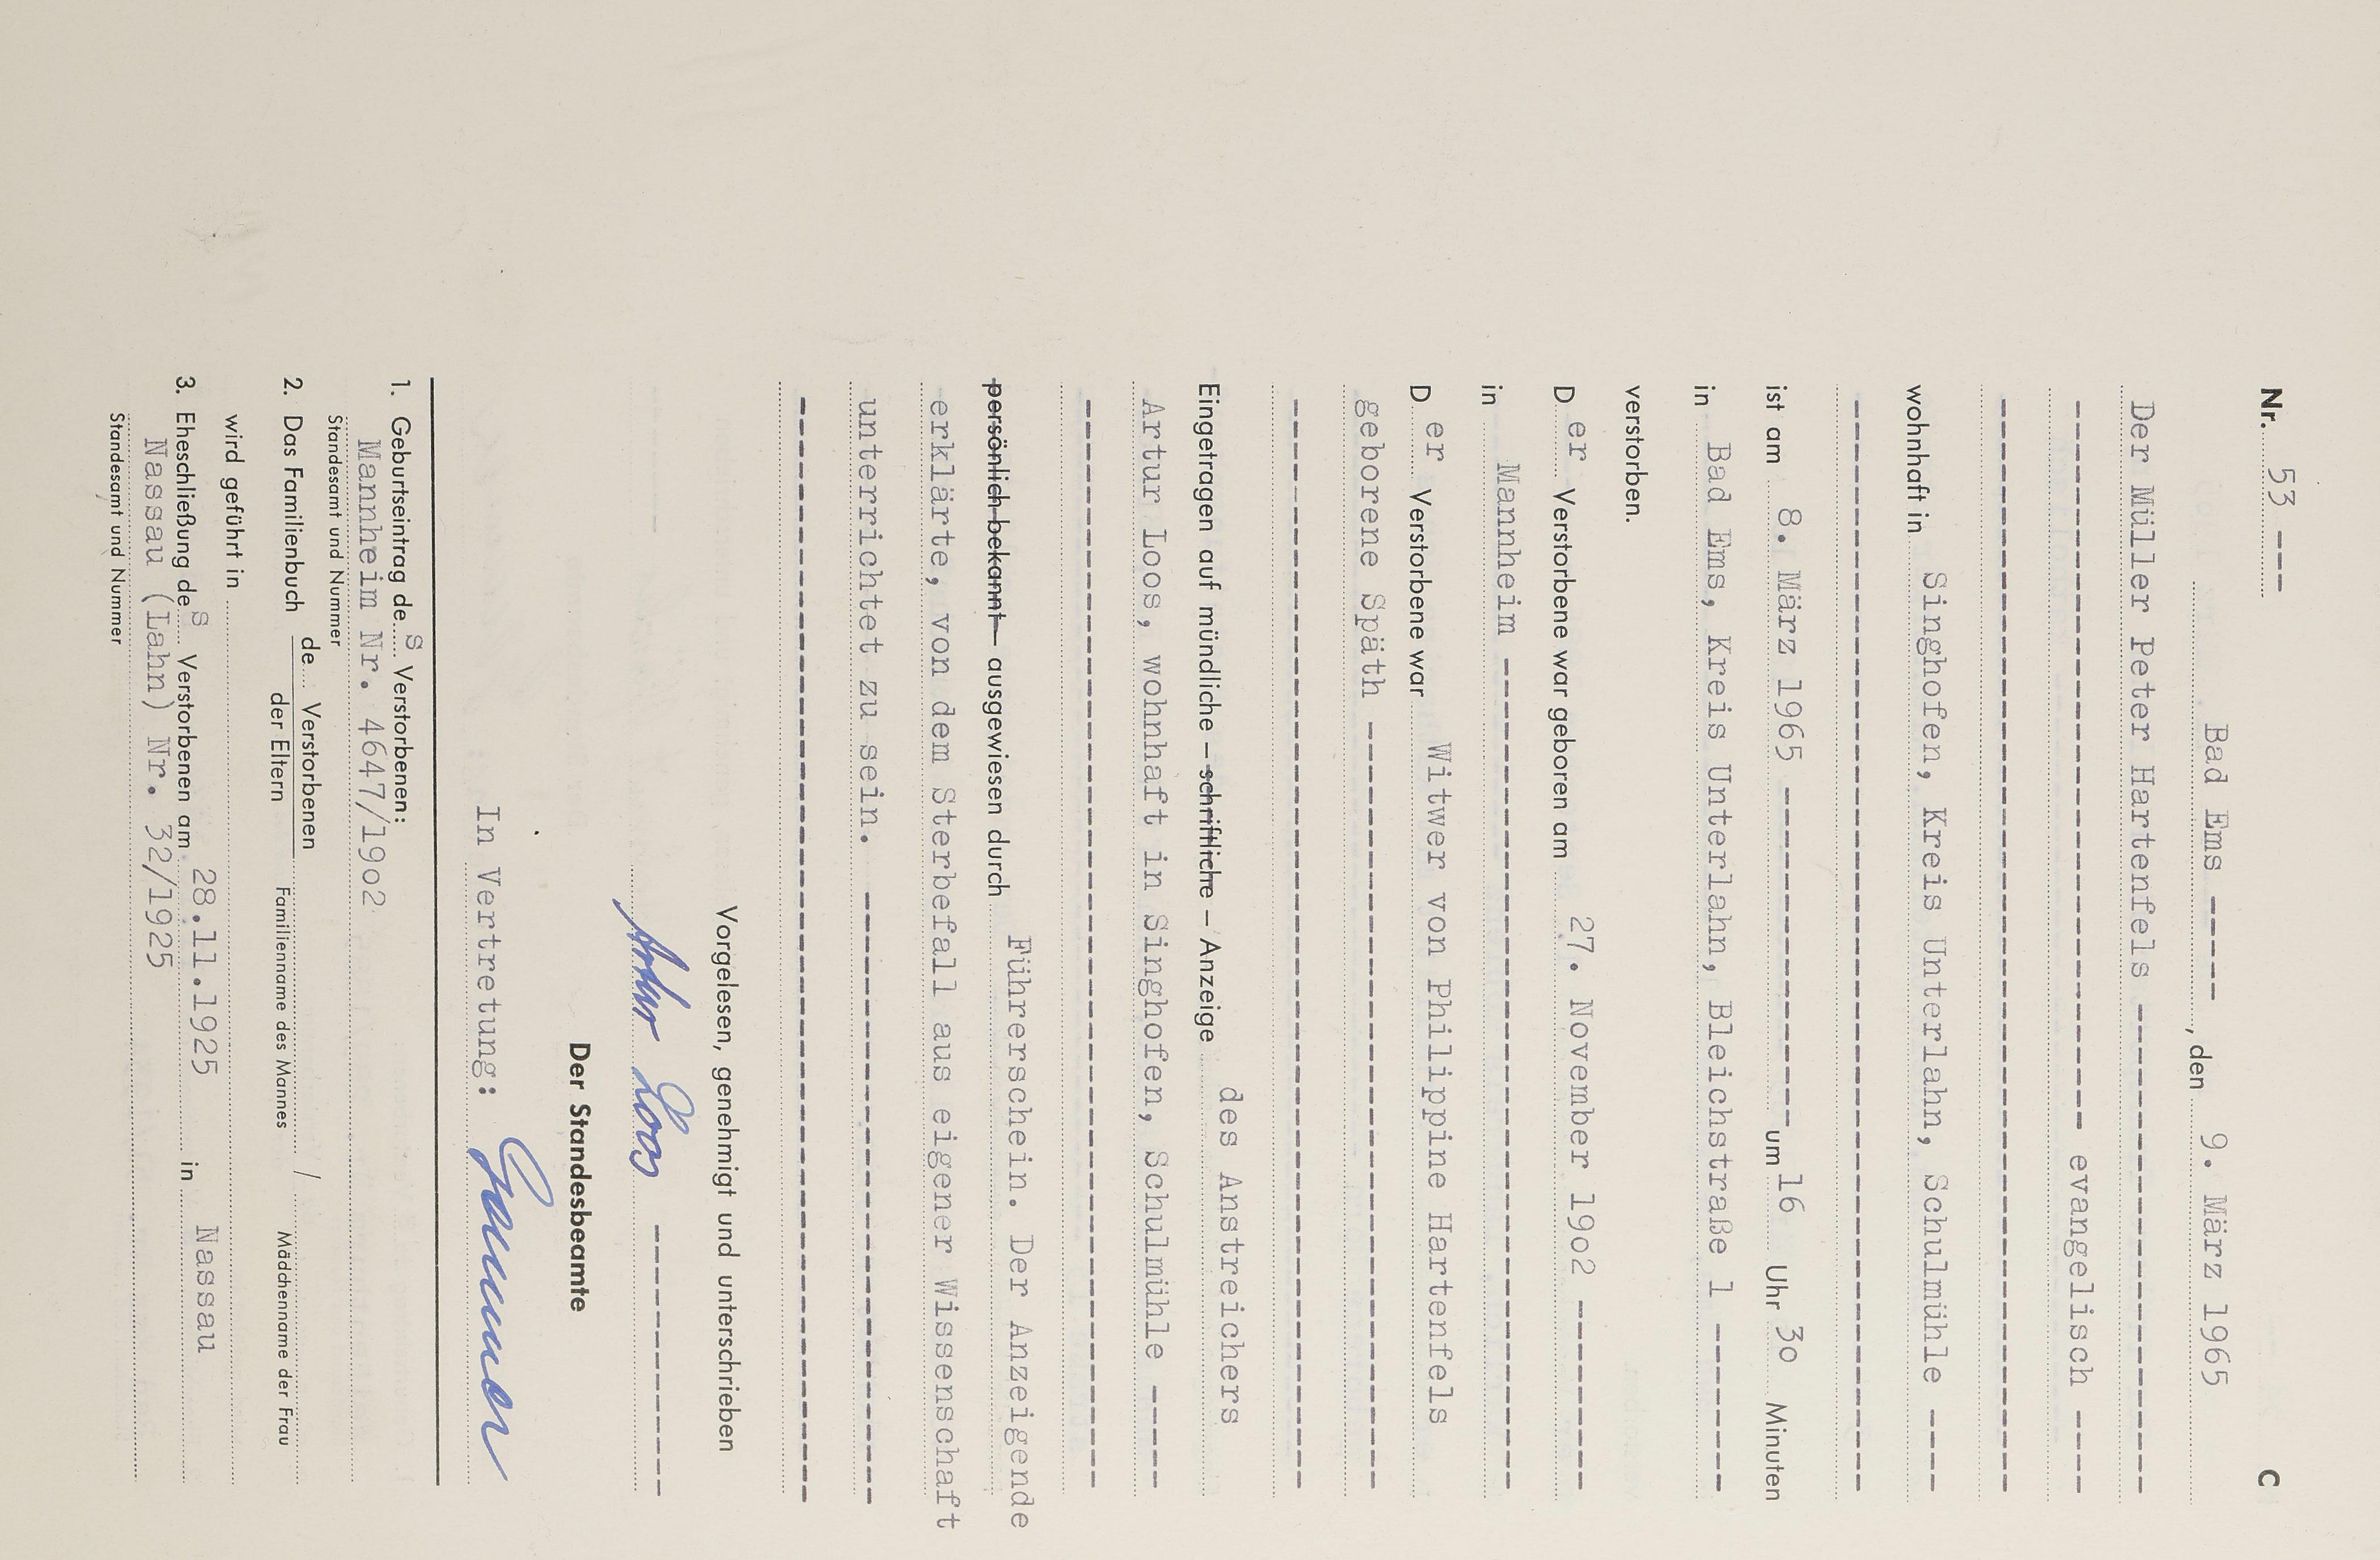 Nr. 53 --- C
Bad Ems -----, den 9. März 1965
Der Müller Peter Hartenfels --------------------
------------------------------ evangelisch ----
wohnhaft in Singhofen, Kreis Unterlahn, Schulmühle ----
ist am 8. März 1965 ---------------- um 16 Uhr 3o Minuten
in Bad Ems, Kreis Unterlahn, Bleichstraße 1 -------
verstorben.
D er Verstorbene war geboren am 27. November 19o2 --------
in Mannheim ------------------------------
D er Verstorbene war Witwer von Philippine Hartenfels
geborene Späth -----------------------------
Eingetragen auf mündliche – schriftliche – Anzeige des Anstreichers
Artur Loos, wohnhaft in Singhofen, Schulmühle -----
persönlich bekannt – ausgewiesen durch Führerschein. Der Anzeigende
erklärte, von dem Sterbefall aus eigener Wissenschaft
unterrichtet zu sein. -----------------------
Vorgelesen, genehmigt und unterschrieben
Artur Loos ----------
Der Standesbeamte
In Vertretung:
1. Geburtseintrag de s Verstorbenen:
Mannheim Nr. 4647/19o2
Standesamt und Nummer
2. Das Familienbuch de Verstorbenen / der Eltern
Familienname des Mannes / Mädchenname der Frau
wird geführt in
3. Eheschließung de s Verstorbenen am 28.11.1925 in Nassau
Nassau (Lahn) Nr. 32/1925
Standesamt und Nummer